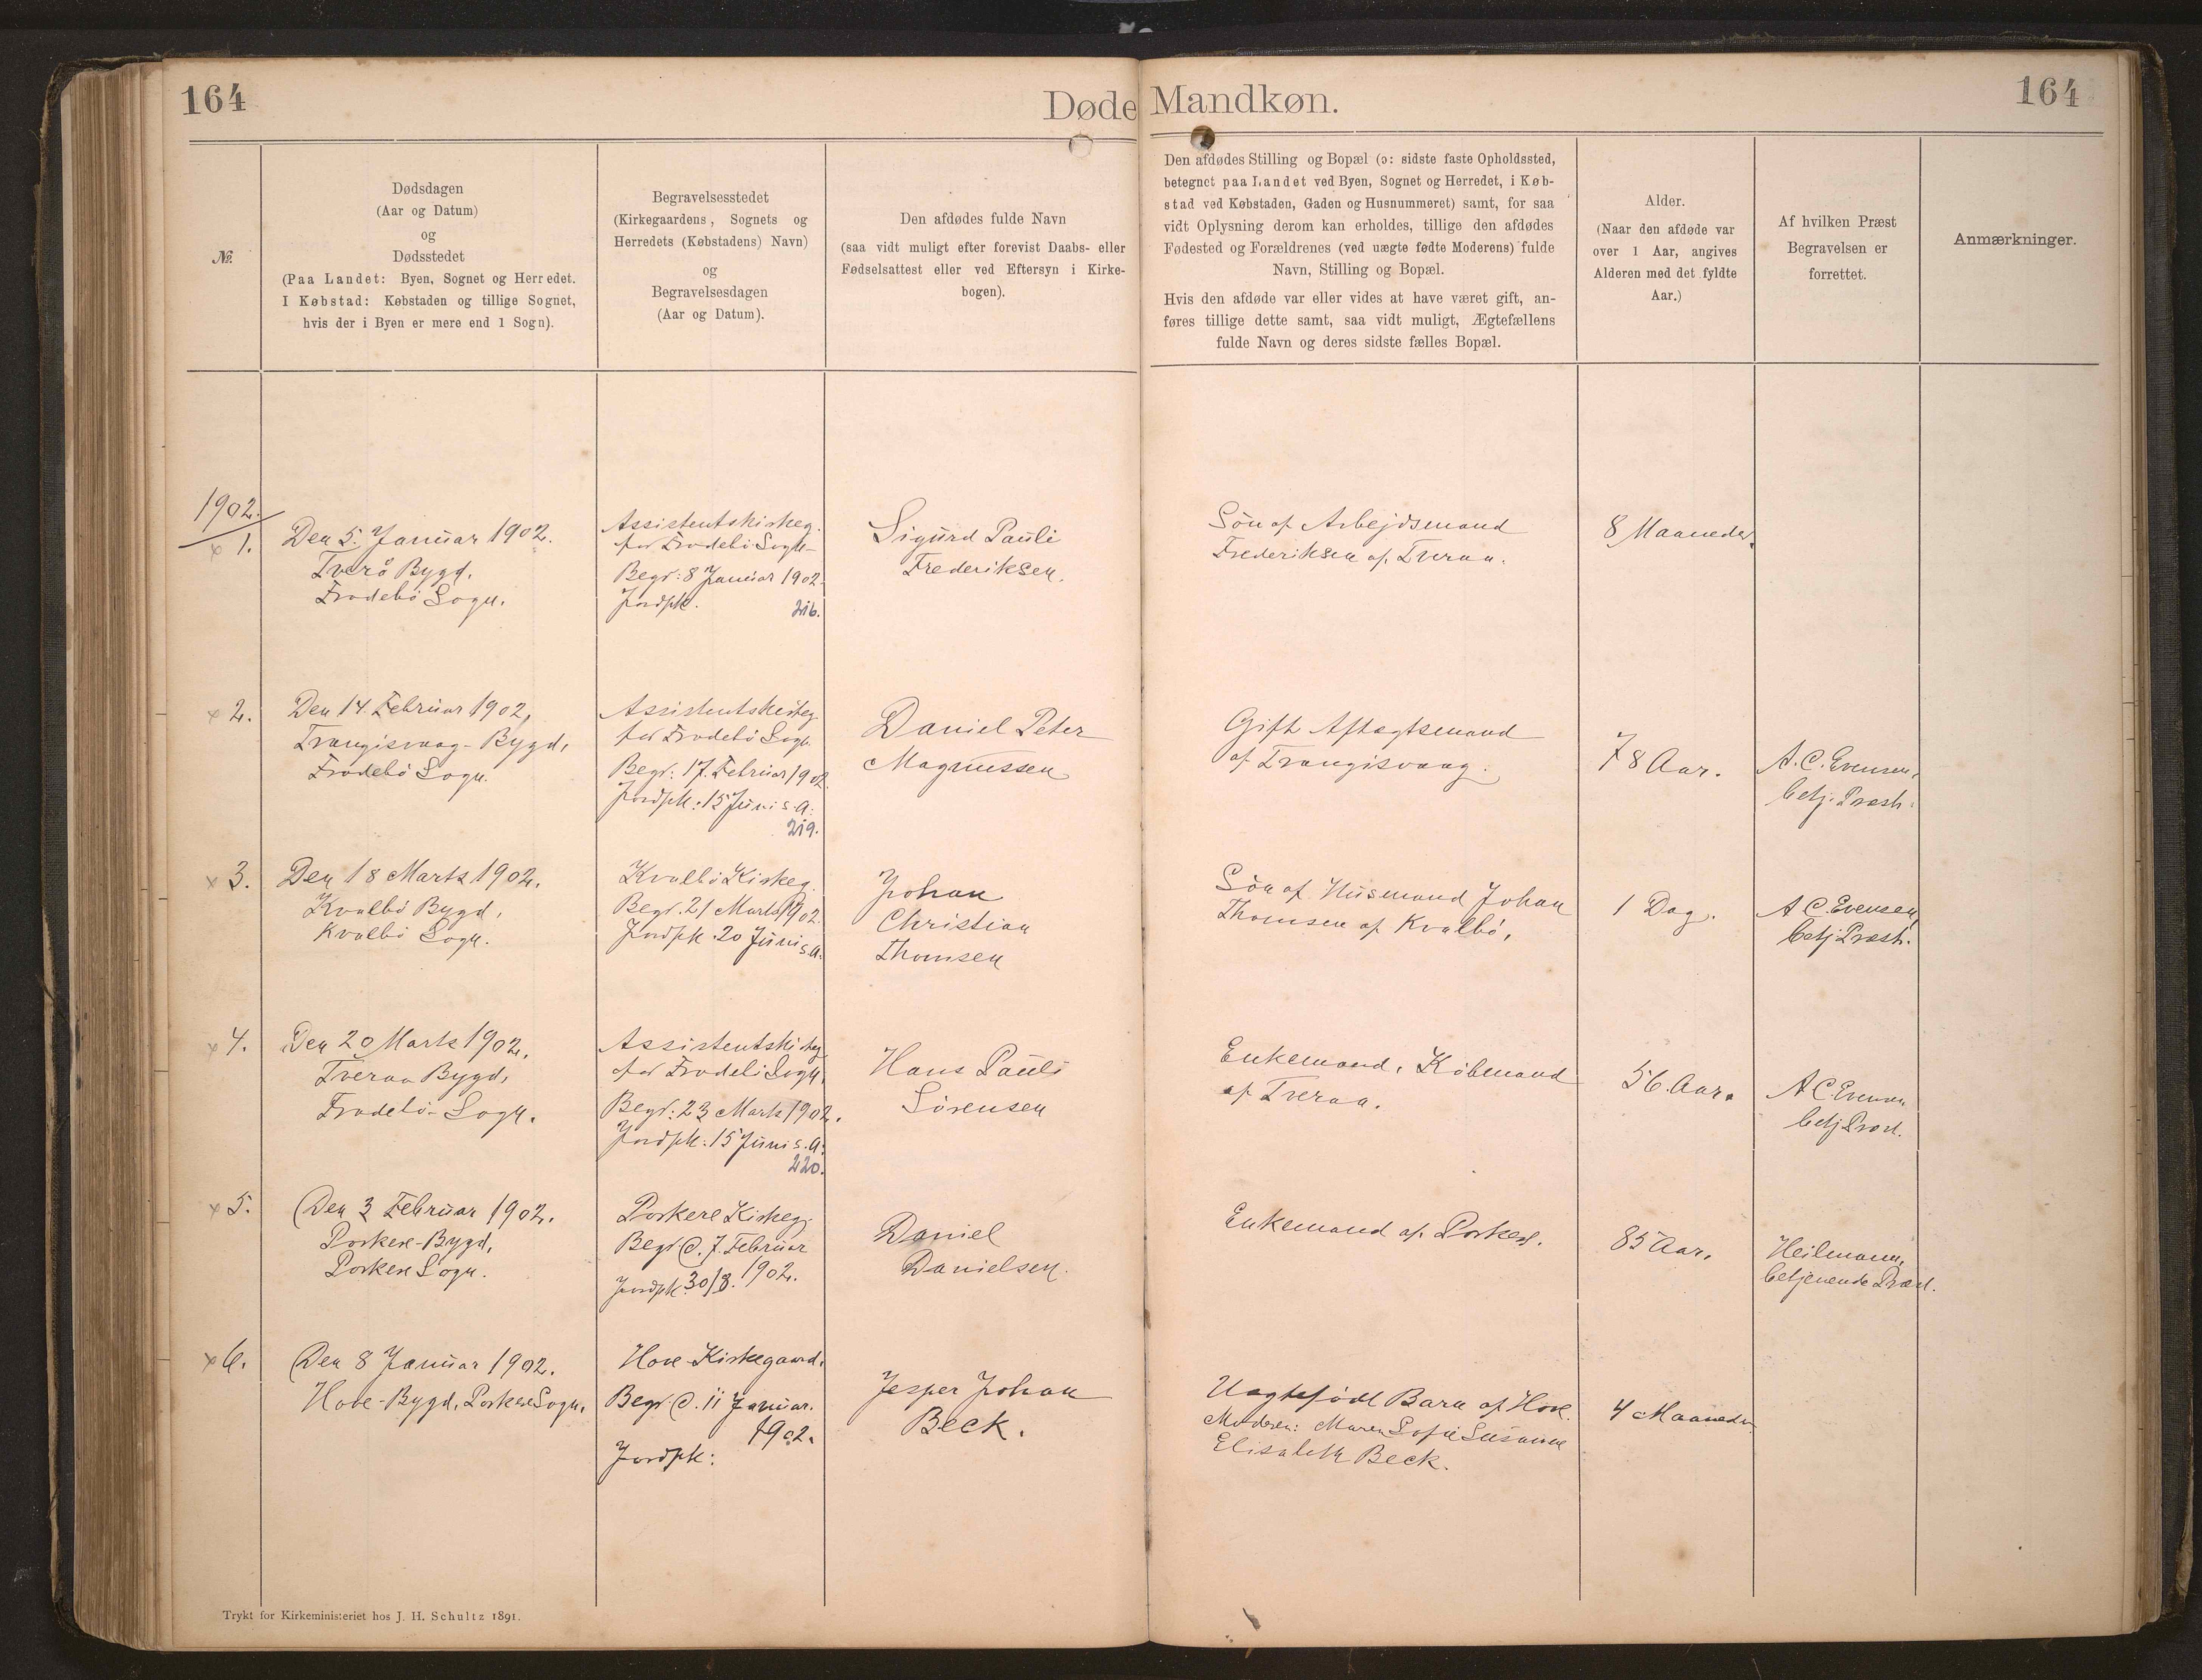 164
Døde Mandkøn.
164
№.
Dødsdagen
(Aar og Datum)
og
Dødsstedet
(Paa Landet: Byen, Sognet og Herredet.
I Købstad: Købstaden og tillige Sognet,
hvis der i Byen er mere end 1 Sogn).
Begravelsesstedet
(Kirkegaardens, Sognets og
Herredets (Købstadens) Navn)
og
Begravelsesdagen
(Aar og Datum).
Den afdødes fulde Navn
(saa vidt muligt efter forevist Daabs- eller
Fødselsattest eller ved Eftersyn i Kirke-
bogen).
Den afdødes Stilling og Bopæl (ɔ: sidste faste Opholdssted,
betegnet paa Landet ved Byen, Sognet og Herredet, i Køb-
stad ved Købstaden, Gaden og Husnummeret) samt, for saa
vidt Oplysning derom kan erholdes, tillige den afdødes
Fødested og Forældrenes (ved uægte fødte Moderens) fulde
Navn, Stilling og Bopæl.
Hvis den afdøde var eller vides at have været gift, an-
føres tillige dette samt, saa vidt muligt, Ægtefællens
fulde Navn og deres sidste fælles Bopæl.
Alder.
(Naar den afdøde var
over 1 Aar, angives
Alderen med det fyldte
Aar.)
Af hvilken Præst
Begravelsen er
forrettet.
Anmærkninger.
1902.
x 1.
Den 5. Januar 1902.
Tverå Bygd.
Frodebö Sogn.
Assistentskirkeg.
for Frodebö Sogn-
Begr: 8 Januar 1902.
Jordpk.
216.
Sigurd Pauli
Frederiksen.
Søn af Arbejdsmand
Frederiksen af Tveraa.
8 Maaneder.
x 2.
Den 14 Februar 1902,
Trangisvaag-Bygd,
Frodebö Sogn.
Assistentskirkeg
for Frodebö Sogn.
Begr: 17. Februar 1902.
Jordpk: 15 Juni s.a.
219.
Daniel Peter
Magnussen
Gift Aftægtsmand
af Trangisvaag.
78 Aar.
A. C. Evensen,
betj. Præst.
x 3.
Den 18 Marts 1902.
Kvalbö Bygd,
Kvalbö Sogn.
Kvalbö Kirkeg.
Begr. 21 Marts 1902.
Jordpk. 20 Juni s.a.
Johan
Christian
Thomsen
Søn af Husmand Johan
Thomsen af Kvalbö.
1 Dag.
A C. Evensen,
betj Præst.
x 4.
Den 20 Marts 1902.
Tveraa Bygd,
Frodebö-Sogn.
Assistentskirkeg
for Frodebö Sogn,
Begr: 23 Marts 1902.
Jordpk: 15 Juni s.a.
220.
Hans Pauli
Sörensen
Enkemand, Købmand
af Tveraa.
56. Aar.
A C. Evensen
betj Præst.
x 5.
Den 3 Februar 1902.
Porkere-Bygd,
Porkere Sogn.
Porkere Kirkeg.
Begr D. 7. Februar
1902.
Jordpk 30/3.
Daniel
Danielsen.
Enkemand af Porkere.
85 Aar.
Heilmann,
betjenende Præst.
x 6.
Den 8 Januar 1902.
Hove-Bygd, Porkere Sogn.
Hove-Kirkegaard.
Begr. D. 11 Januar.
1902.
Jordpk:
Jesper Johan
Beck.
Uægtefødt Barn af Hove.
Moderen: Maren Sofie Susanne
Elisabeth Beck.
4 Maaneder
Trykt for Kirkeministeriet hos J. H. Schultz 1891.